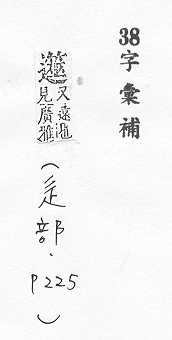 38字彙補
又遠
見廣雅
(辵部．P225)